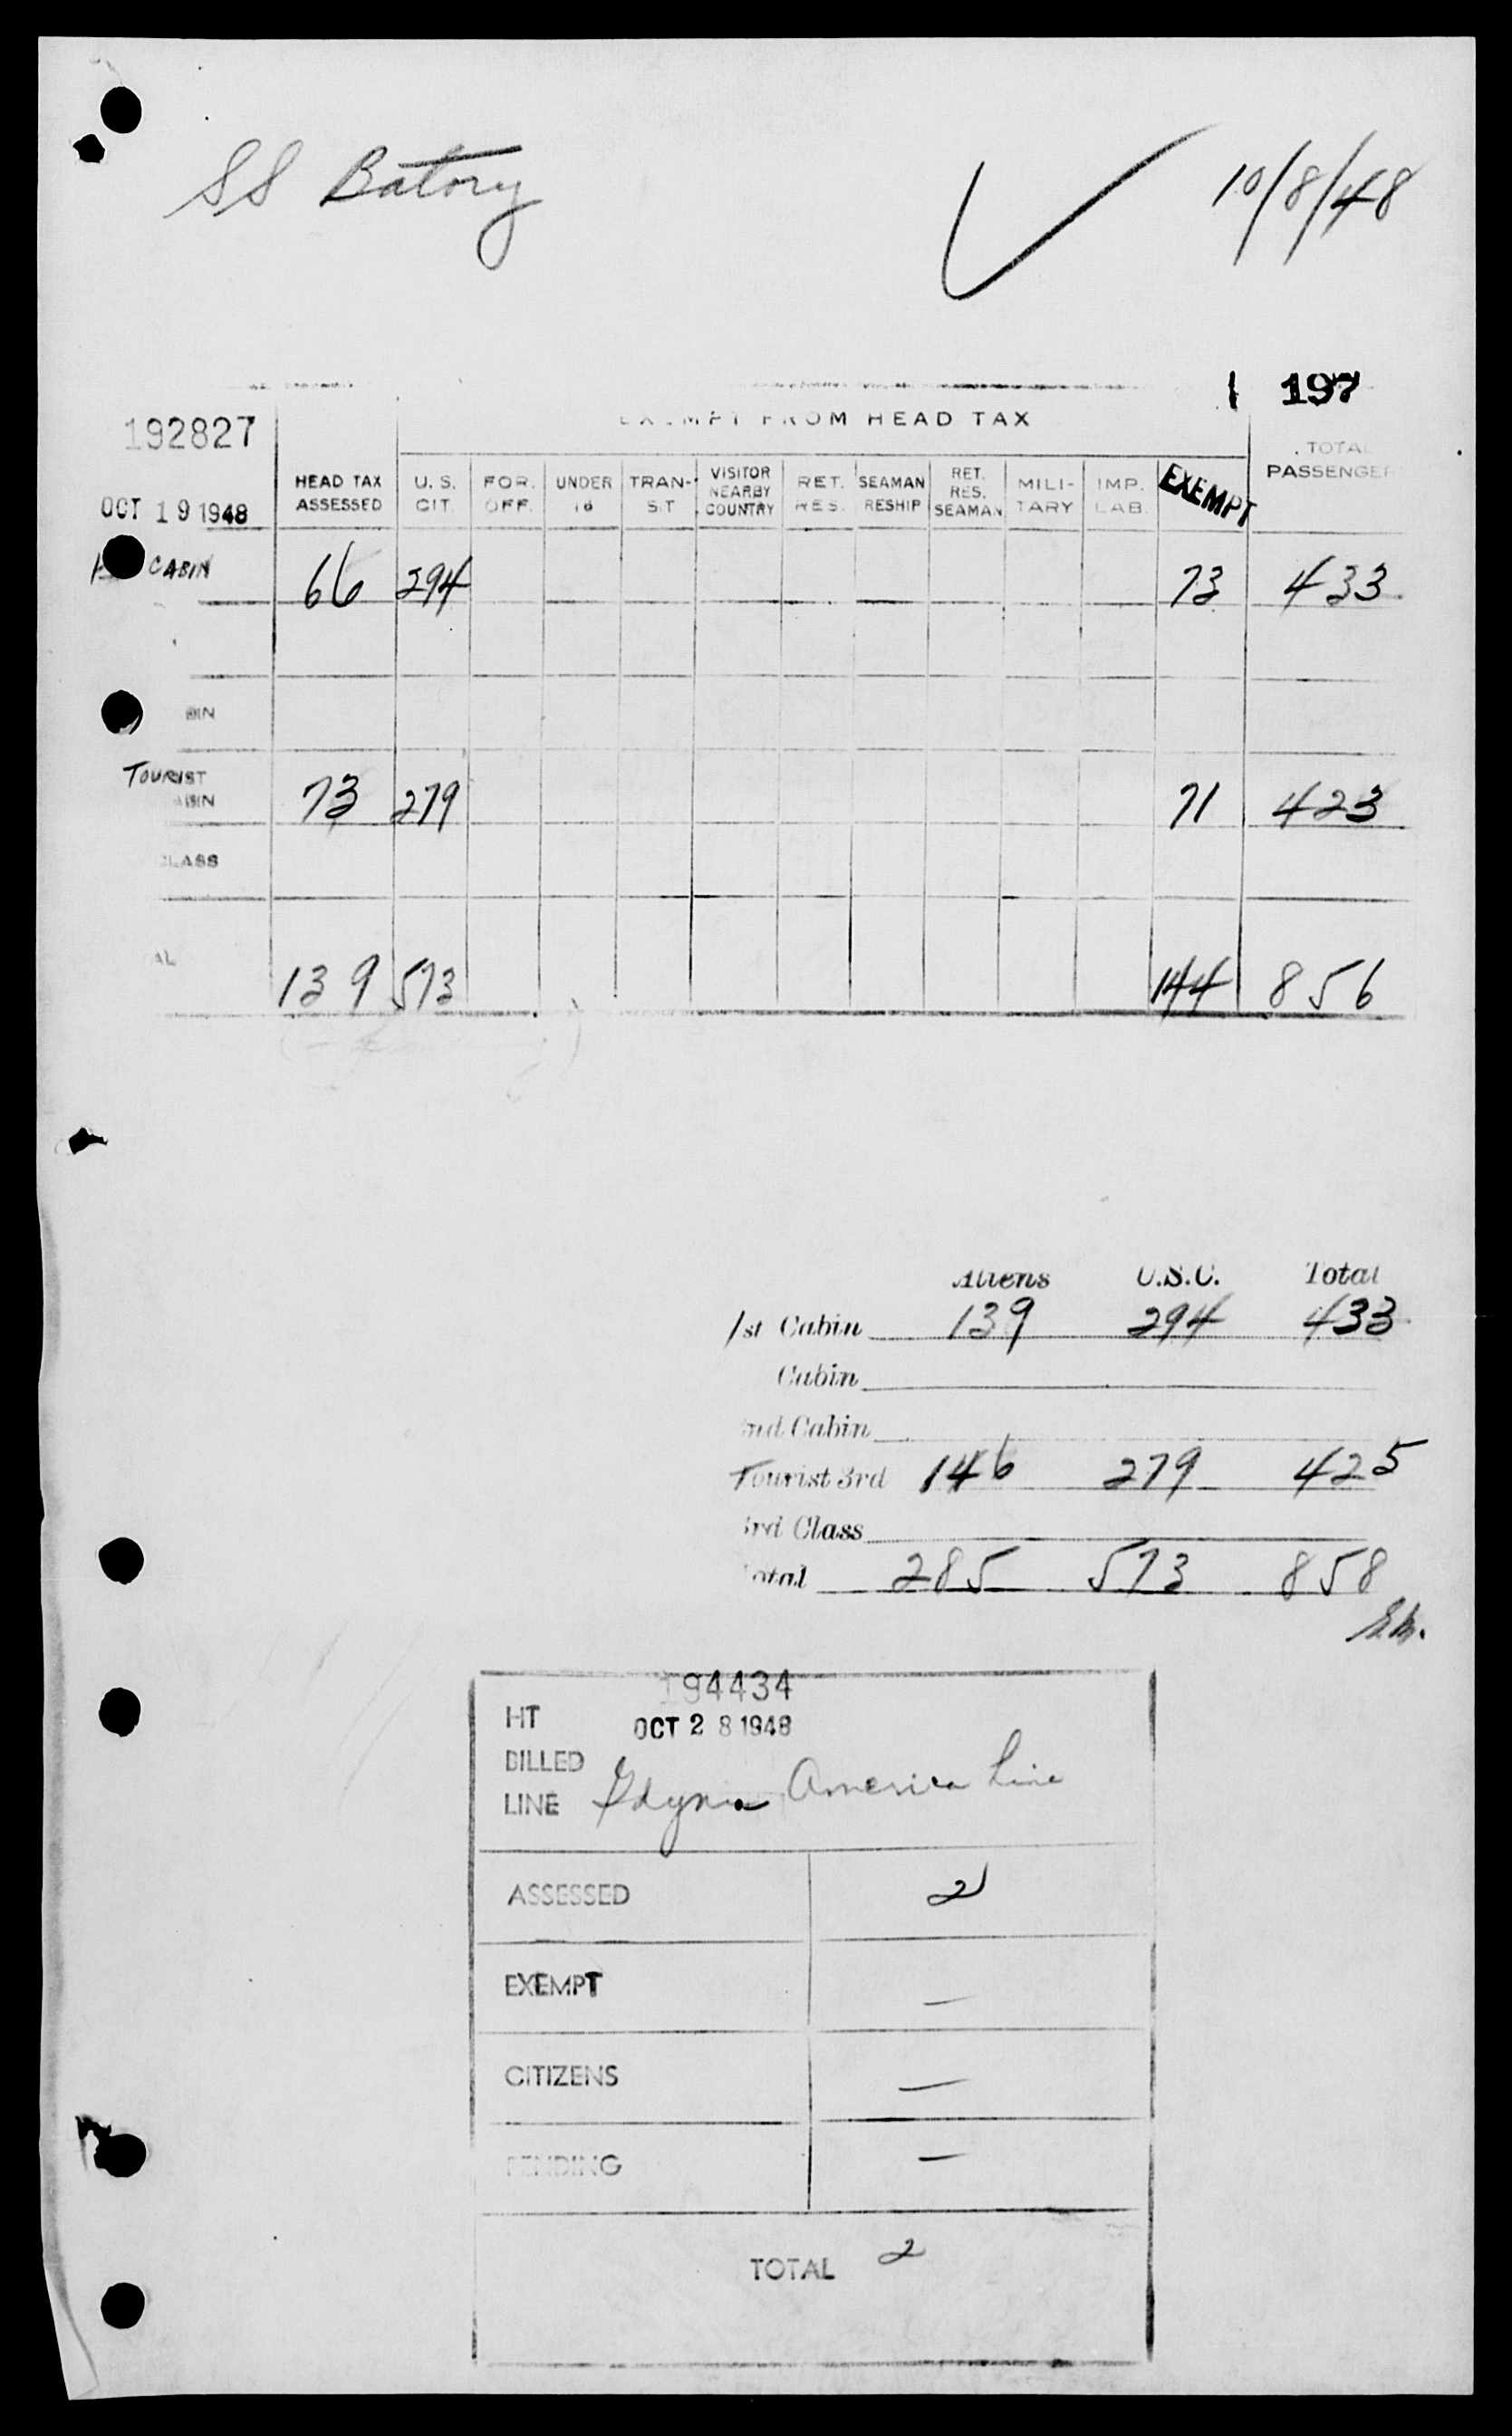 SS Batory
10/8/48
197
192827
OCT 19 1948
FROM HEAD TAX
HEAD TAX ASSESSED
U. S. CIT.
FOR. OFF.
UNDER 16
TRAN-
VISITOR NEARBY COUNTRY
RET. RES.
SEAMAN RESHIP
RET. RES. SEAMAN
MILI-TARY
IMP. LAB.
EXEMPT
TOTAL PASSENGER
CABIN 66 294 73 433
BIN
TOURIST
73 279 71 423
CLASS
AL 139 573 144 856
Aliens U.S.C. Total
1st Cabin 139 294 433
Cabin
2nd Cabin
Tourist 3rd 146 279 425
3rd Class
Total 285 573 858
194434
HT OCT 28 1948
BILLED
LINE Gdynia America Line
ASSESSED 2
EXEMPT —
CITIZENS —
PENDING —
TOTAL 2